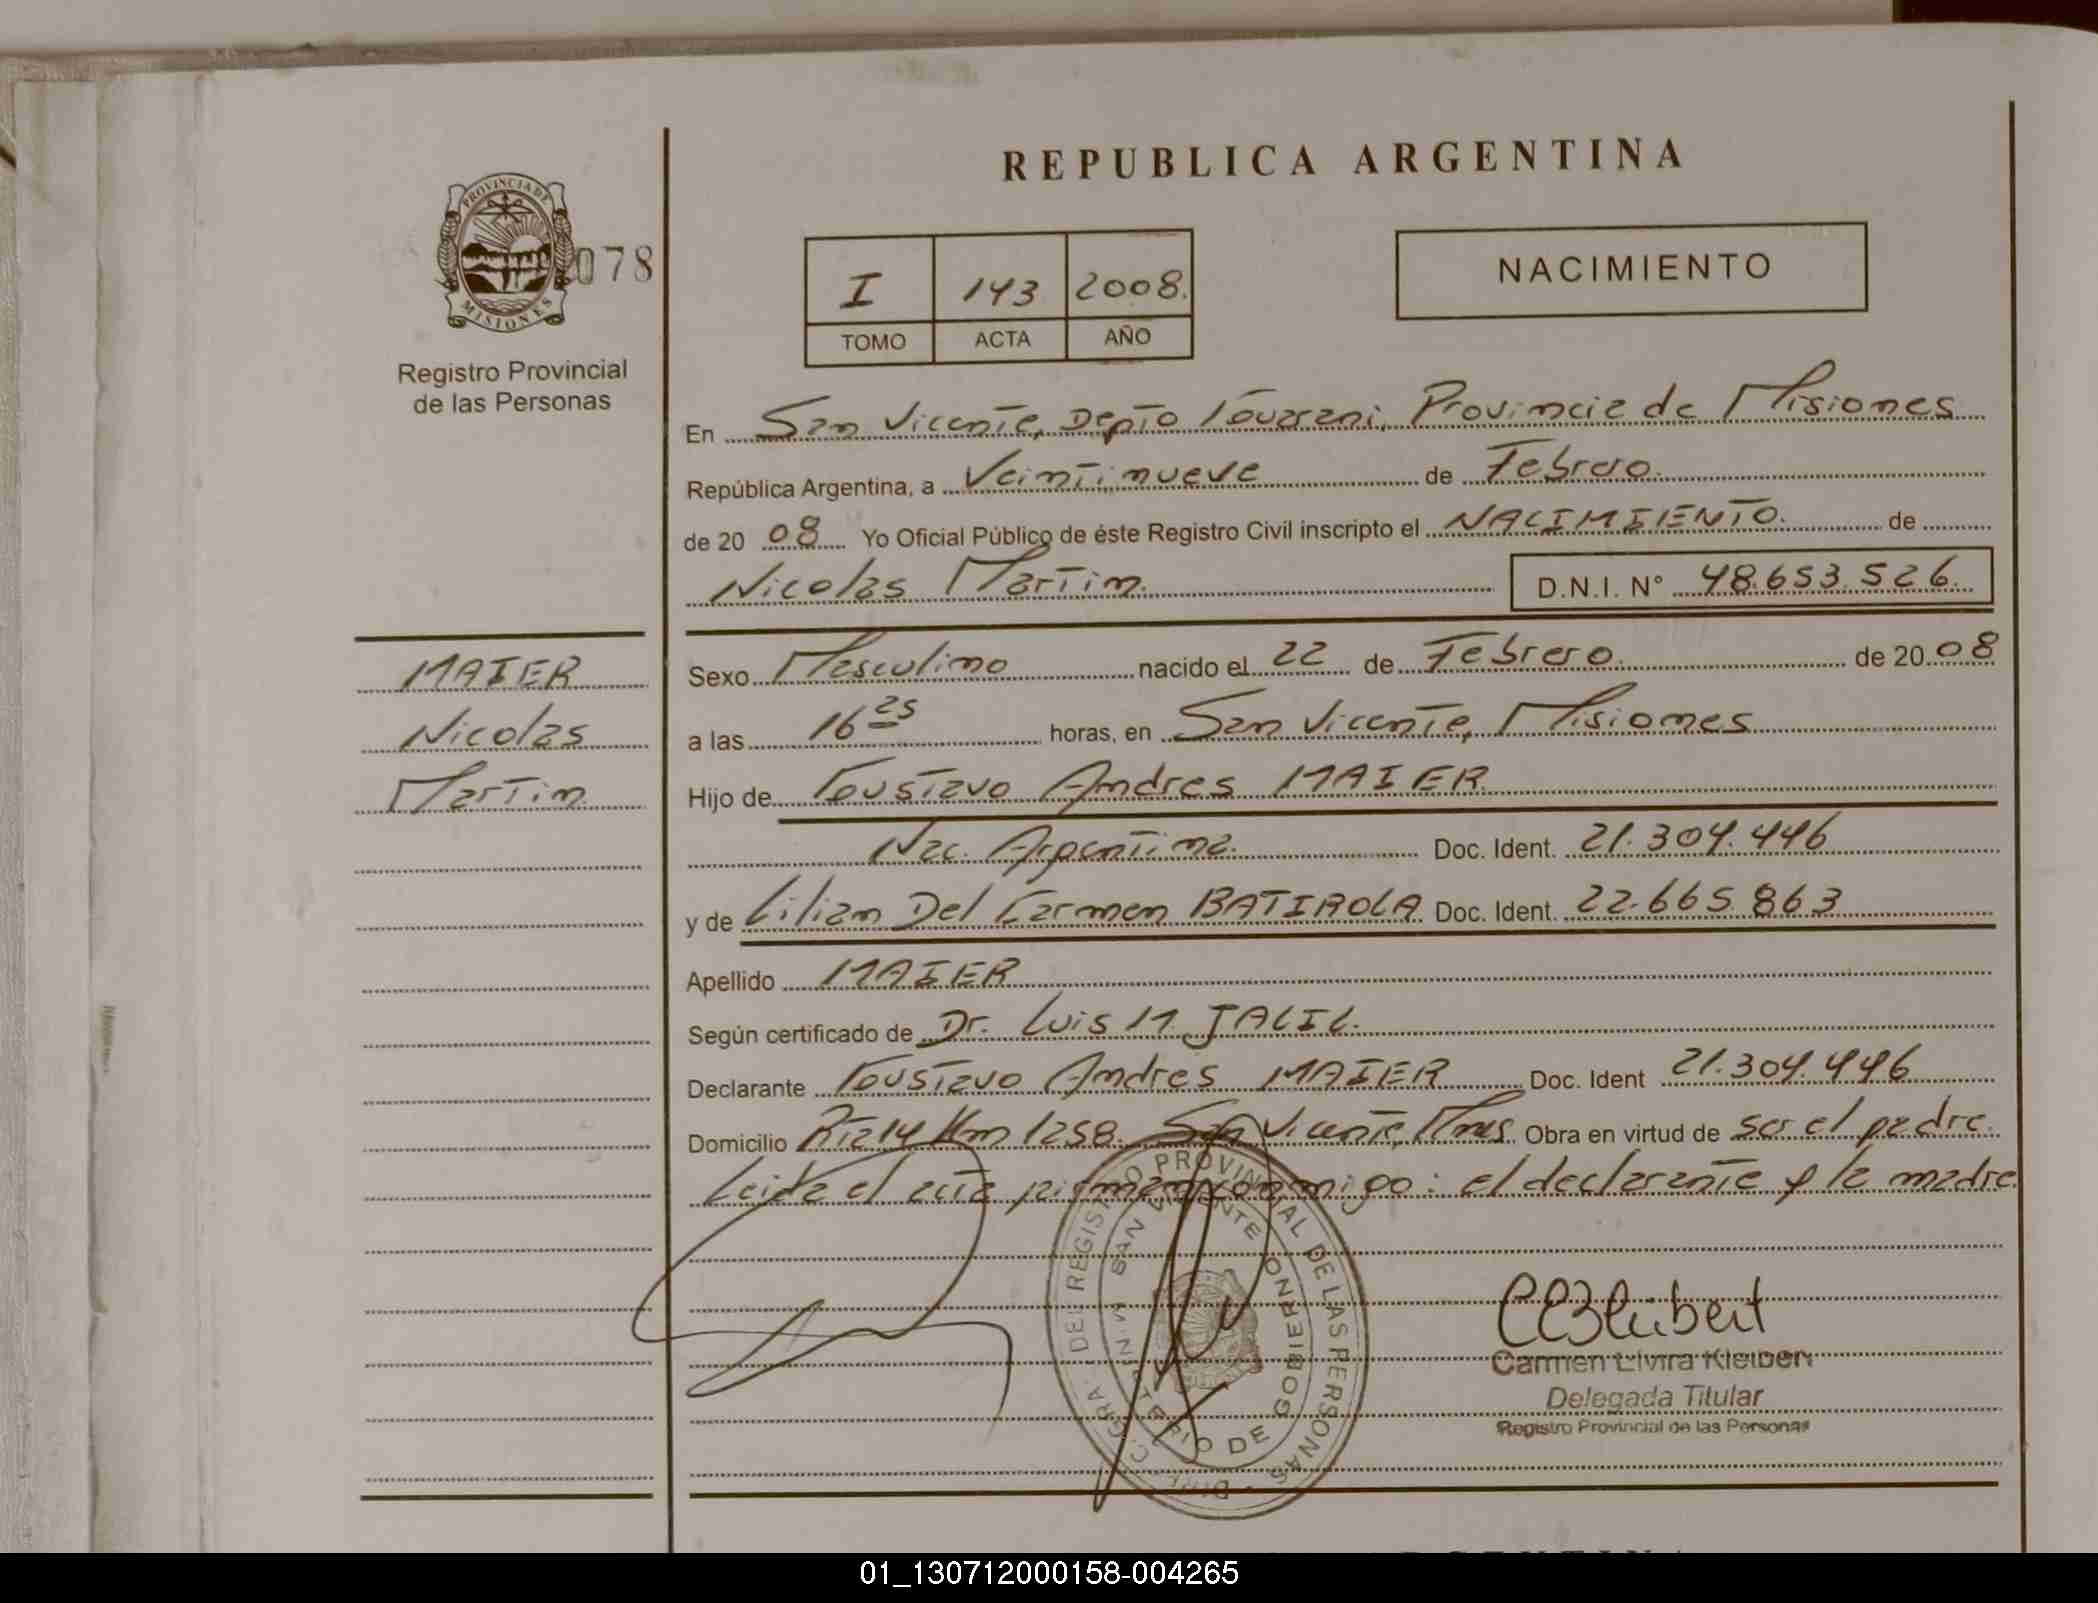 REPUBLICA ARGENTINA
PROVINCIA DE
MISIONES
078
Registro Provincial
de las Personas
I 143 2008.
TOMO ACTA AÑO
NACIMIENTO
En San Vicente, Depto Guarani, Provincia de Misiones
República Argentina, a Veintinueve de Febrero.
de 20 08 Yo Oficial Público de éste Registro Civil inscripto el NACIMIENTO. de
Nicolas Martin. D.N.I. N° 48.653.526.
MAIER
Nicolas
Martin
Sexo Masculino nacido el 22 de Febrero de 20 08
a las 16 25 horas, en San Vicente, Misiones
Hijo de Gustavo Andres MAIER
Nac. Argentina. Doc. Ident. 21.304.446
y de Lilian Del Carmen BATIROLA Doc. Ident. 22.665.863
Apellido MAIER
Según certificado de Dr. Luis M. JALIL.
Declarante Gustavo Andres MAIER Doc. Ident 21.304.446
Domicilio Rta 14 Km 1258. San Vicente, Mnes Obra en virtud de ser el padre.
Leida el acta, firman conmigo: el declarante y la madre
REGISTRO PROVINCIAL DE LAS PERSONAS
SAN VICENTE
DE GOBIERNO
Carmen Elvira Kleibert
Delegada Titular
Registro Provincial de las Personas
01_130712000158-004265